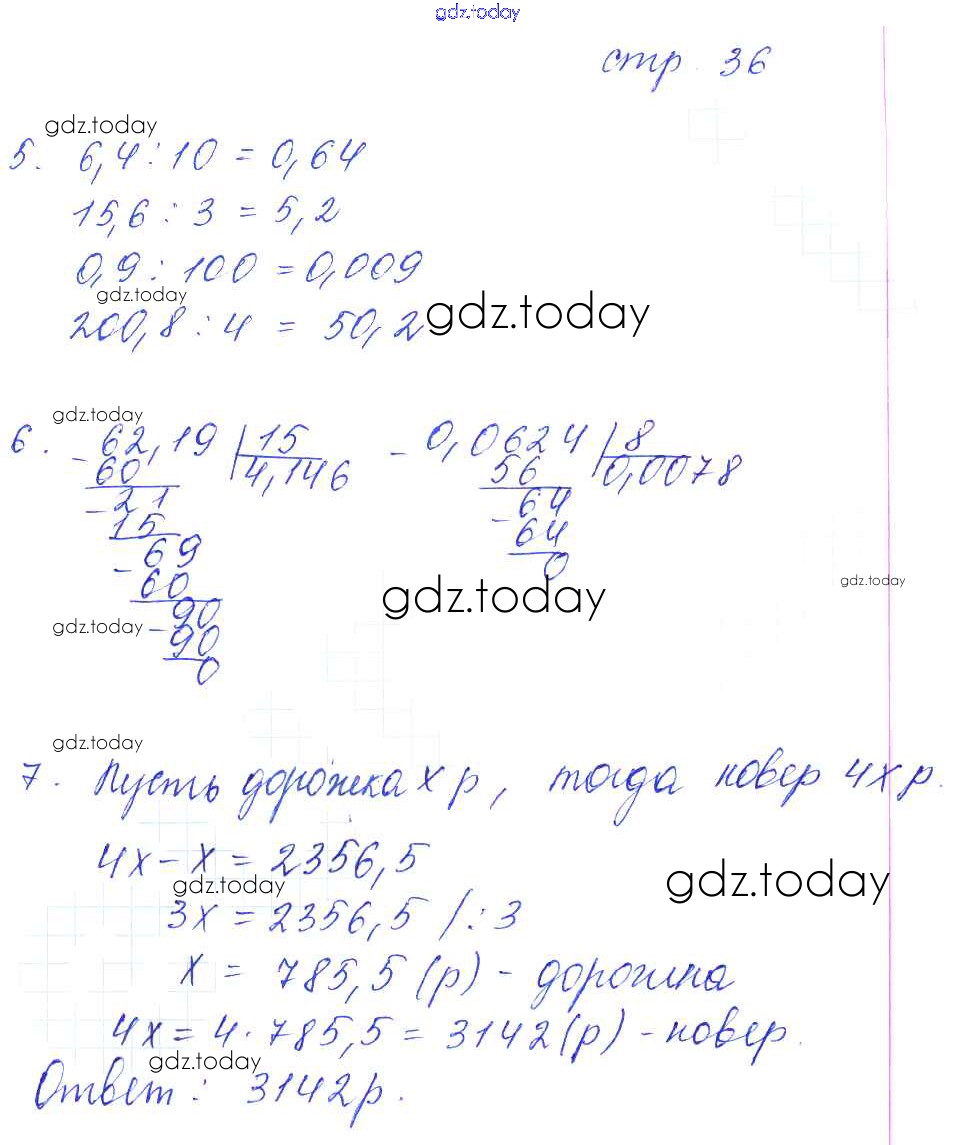 gdz.today
стр. 36
gdz.today
5. 6,4 : 10 = 0,64
15,6 : 3 = 5,2
0,9 : 100 = 0,009
gdz.today
200,8 : 4 = 50,2
gdz.today
gdz.today
6. - 62,19 | 15 - 0,0624 | 8
60 4,146 56 0,0078
- 21 64
15 - 64
- 69 0
60
gdz.today
gdz.today
90
gdz.today
- 90
0
gdz.today
7. Пусть дорожка х р, тогда ковер 4х р.
4х - х = 2356,5
gdz.today
gdz.today
3х = 2356,5 / : 3
х = 785,5 (р) - дорожка
4х = 4 · 785,5 = 3142 (р) - ковер.
gdz.today
Ответ : 3142 р.